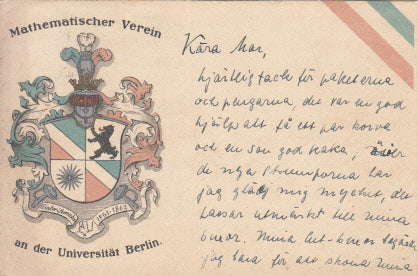 Mathematischer Verein
an der Universität Berlin.
1861-1862
Kära Mor,
hjärtlig tack för paketerna
och pengarna, det var en god
hjälp att få ett par korva
och en son god kaka,
de nya strumporna har
jag mig mycket, det
passar utmärkt till mina
benor. Mina
jag bara för att skona mina